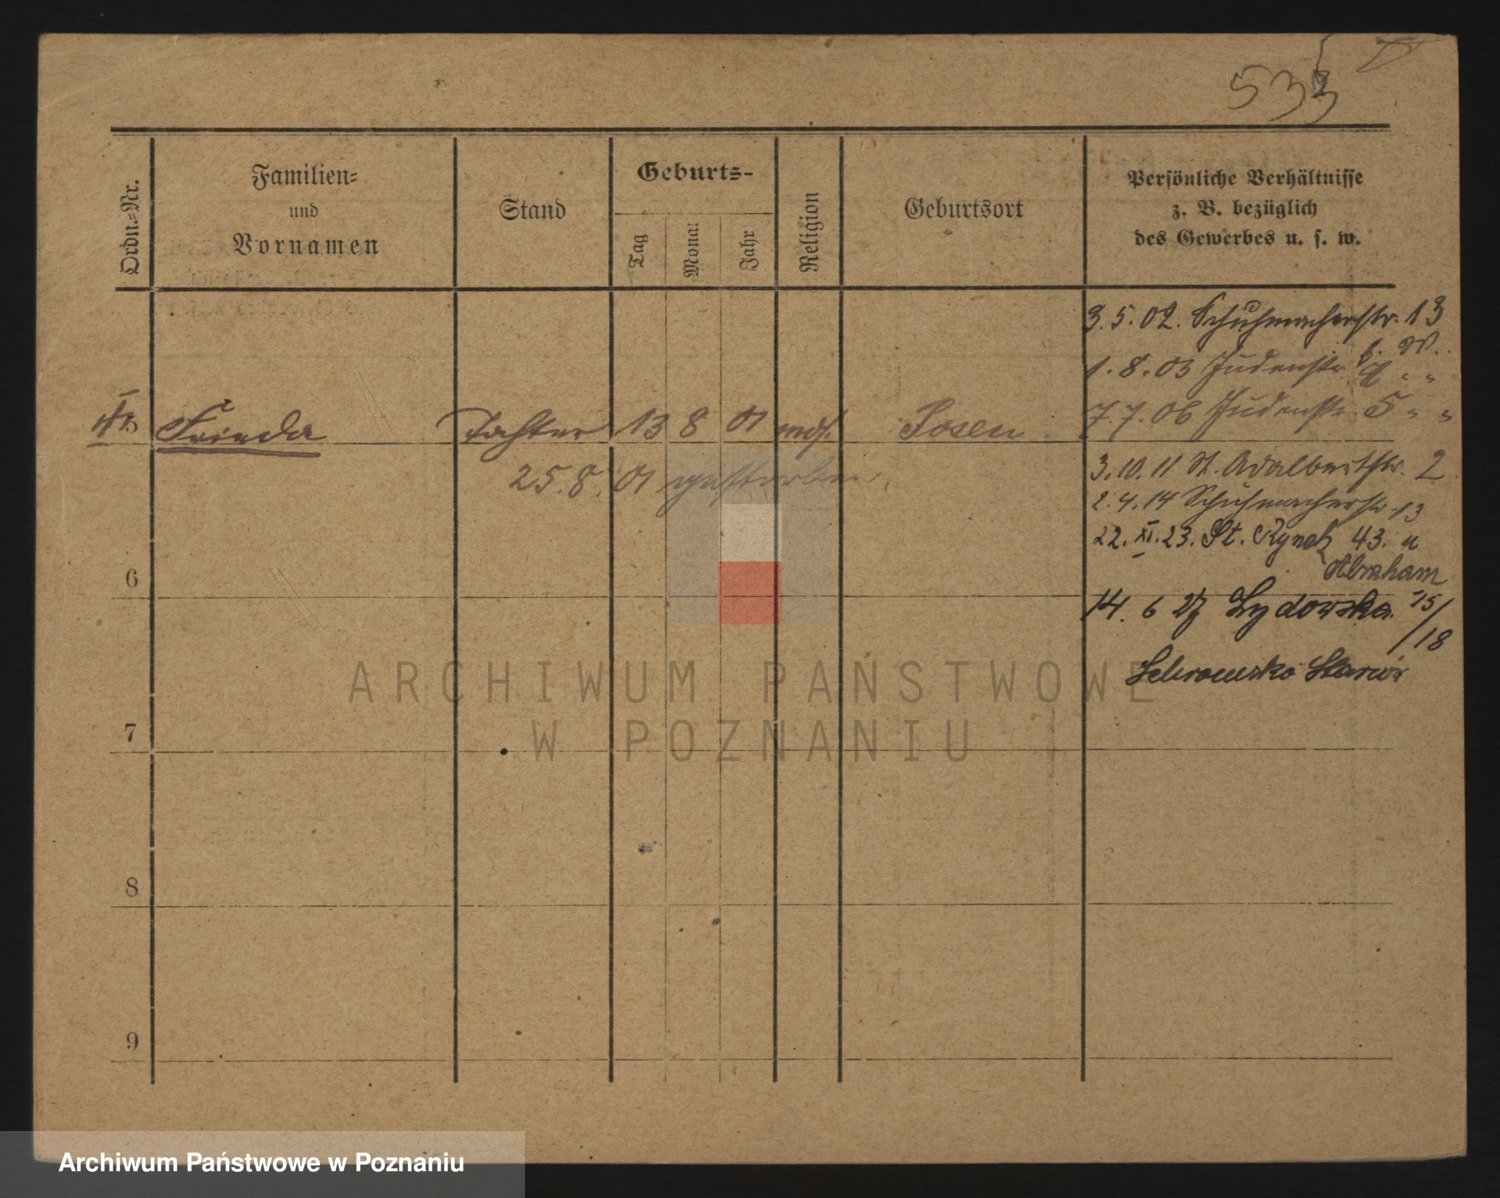 533
Ordn.-Nr.
Familien-
und
Vornamen
Stand
Geburts-
Tag
Monat
Jahr
Religion
Geburtsort
Persönliche Verhältnisse
z. B. bezüglich
des Gewerbes u. s. w.
3.5.02. Schuhmacherstr. 13
1.8.03 Judenstr.
Frieda Tochter 13 8 01 mos. Posen
7.7.06 Judenstr. 5 " "
25.8.01 gestorben
3.10.11 St. Adalbertstr. 2
2.4.14 Schuhmacherstr. 13
22.XI.23. St. Rynek 43. u
Abraham
6
14. 6 27 Żydowska 15/
/18
7
8
9
ARCHIWUM PAŃSTWOWE
W POZNANIU
Archiwum Państwowe w Poznaniu